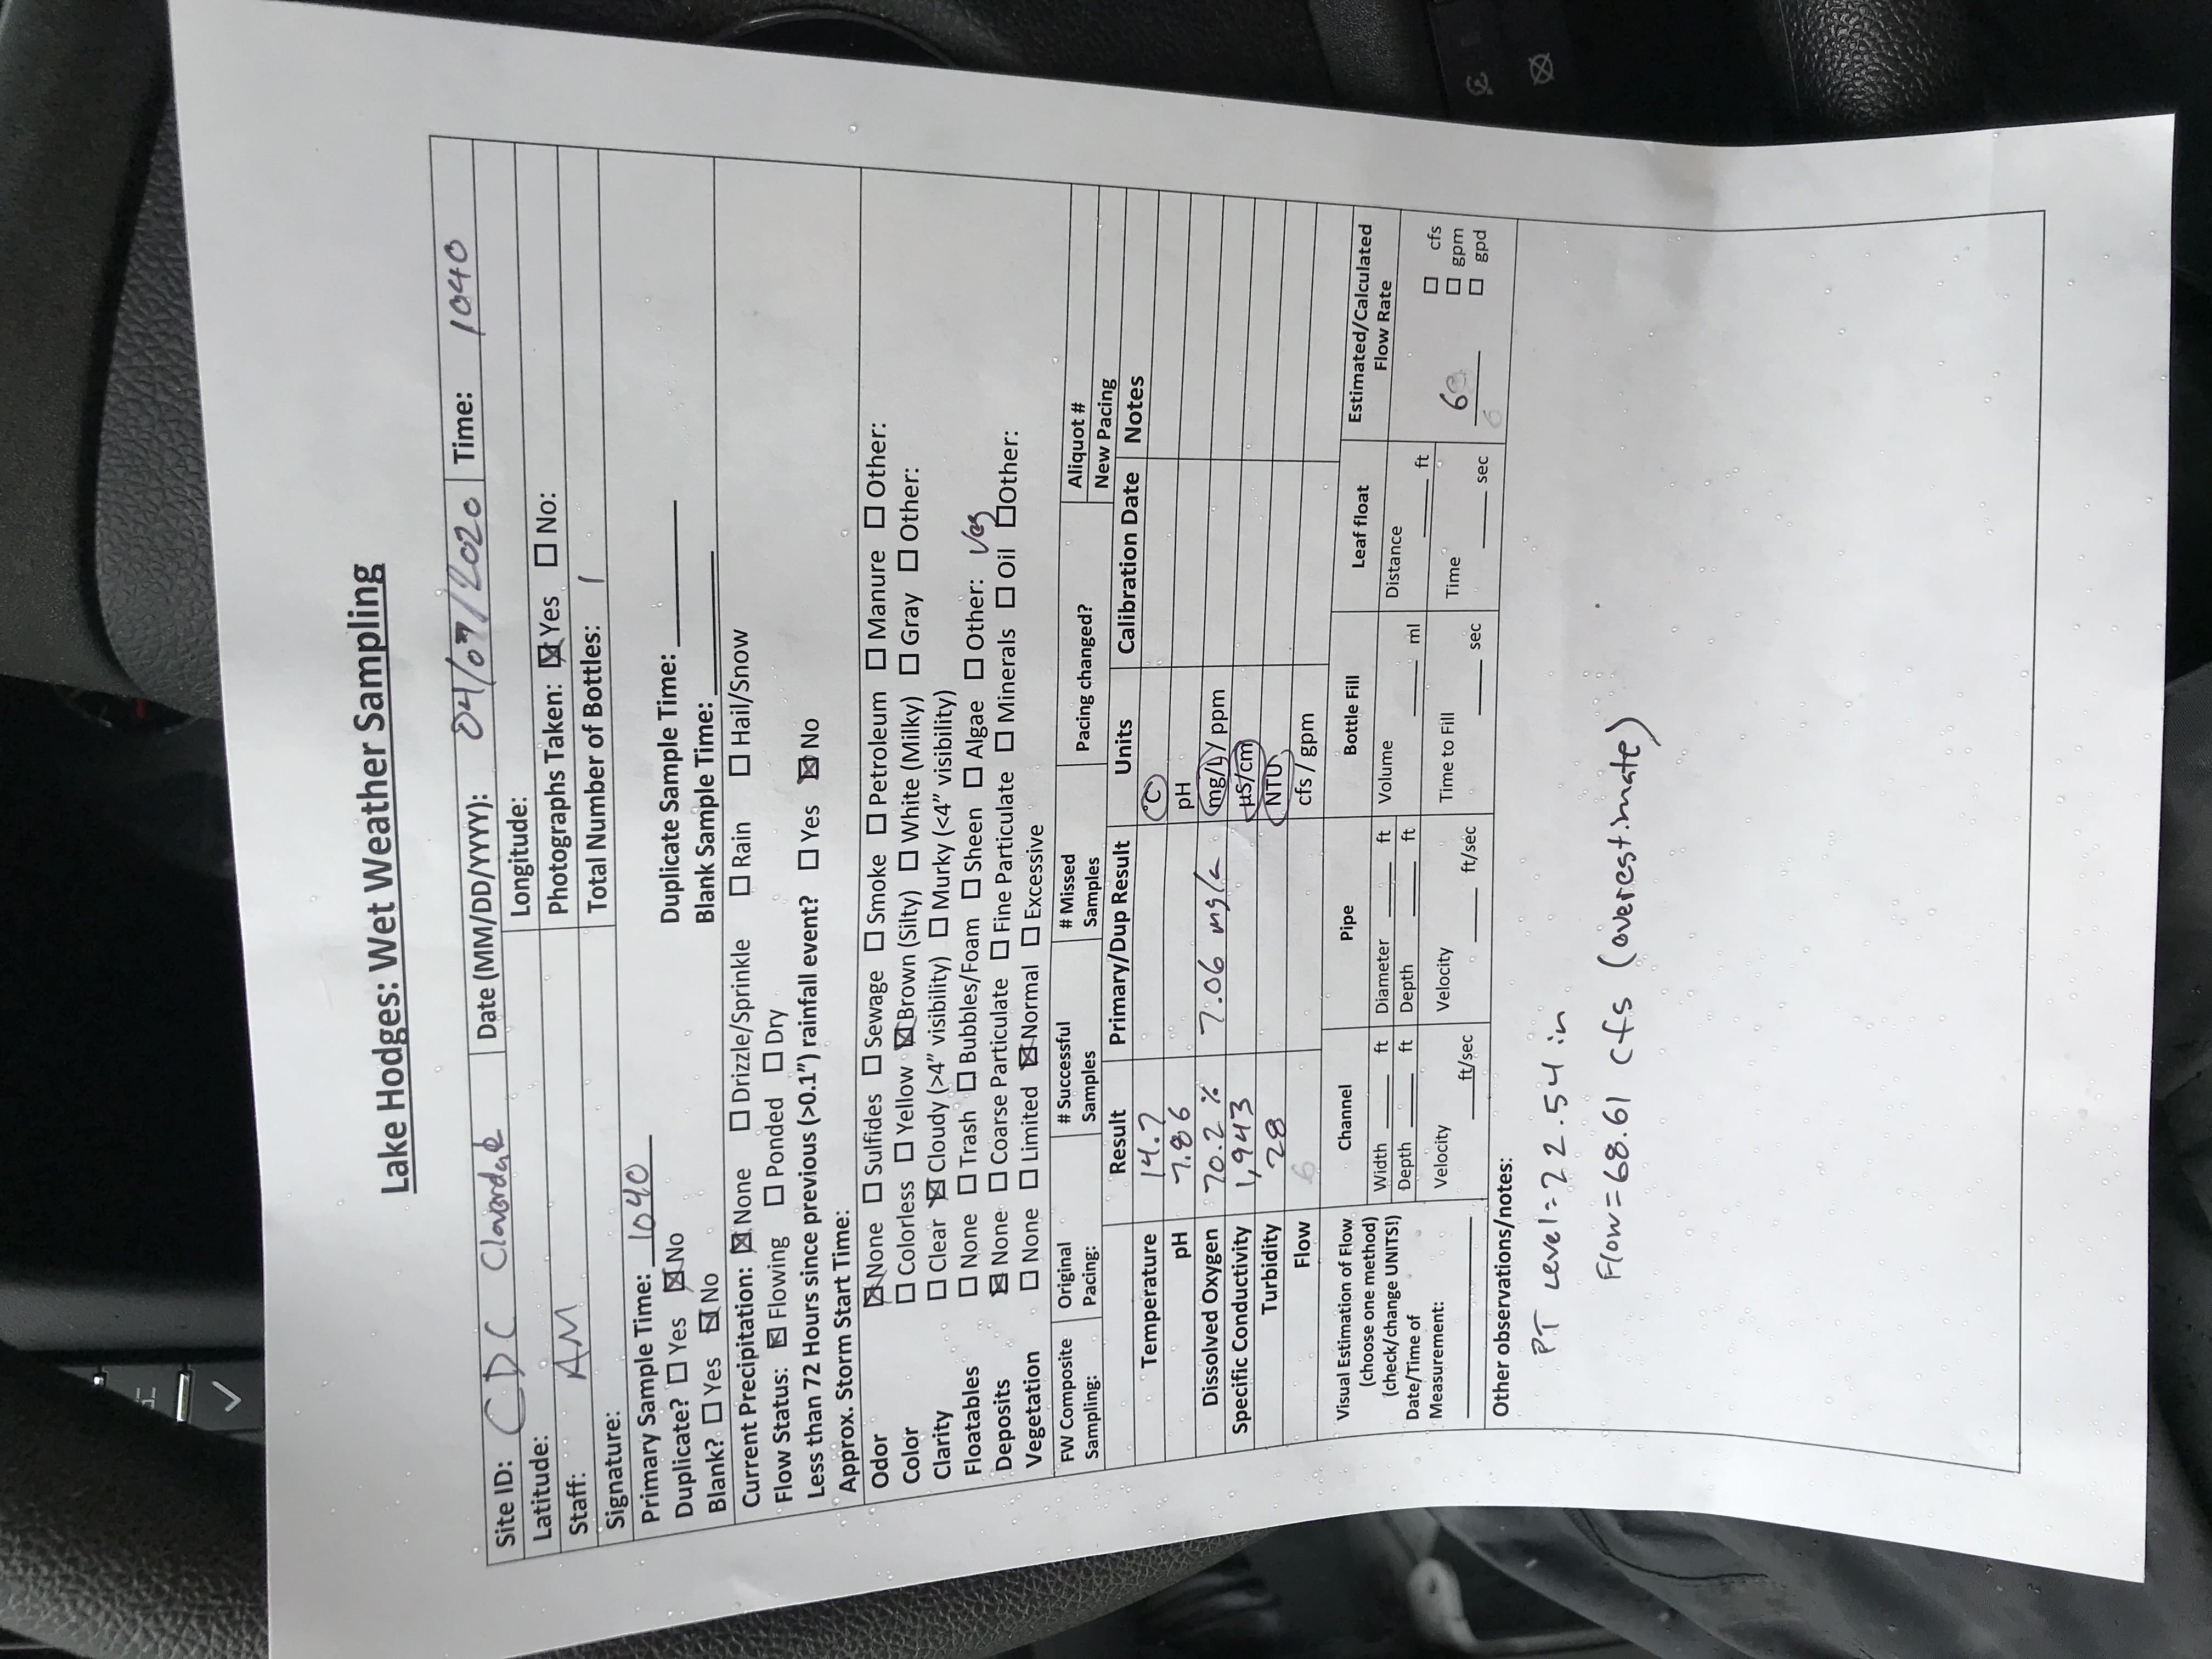 Lake Hodges: Wet Weather Sampling
Site ID: CDC Cloverdale Date (MM/DD/YYYY): 04/07/2020 Time: 1040
Latitude: Longitude:
Staff: AM Photographs Taken: ☒ Yes ☐ No:
Signature: Total Number of Bottles: 1
Primary Sample Time: 1040
Duplicate? ☐ Yes ☒ No Duplicate Sample Time: ______
Blank? ☐ Yes ☒ No Blank Sample Time: ______
Current Precipitation: ☒ None ☐ Drizzle/Sprinkle ☐ Rain ☐ Hail/Snow
Flow Status: ☒ Flowing ☐ Ponded ☐ Dry
Less than 72 Hours since previous (>0.1") rainfall event? ☐ Yes ☒ No
Approx. Storm Start Time:
Odor ☒ None ☐ Sulfides ☐ Sewage ☐ Smoke ☐ Petroleum ☐ Manure ☐ Other:
Color ☐ Colorless ☐ Yellow ☒ Brown (Silty) ☐ White (Milky) ☐ Gray ☐ Other:
Clarity ☐ Clear ☒ Cloudy (>4" visibility) ☐ Murky (<4" visibility)
Floatables ☐ None ☐ Trash ☐ Bubbles/Foam ☐ Sheen ☐ Algae ☐ Other: Veg
Deposits ☒ None ☐ Coarse Particulate ☐ Fine Particulate ☐ Minerals ☐ Oil ☐ Other:
Vegetation ☐ None ☐ Limited ☒ Normal ☐ Excessive
FW Composite Sampling: Original Pacing: # Successful Samples # Missed Samples Pacing changed? Aliquot #
New Pacing
Result Primary/Dup Result Units Calibration Date Notes
Temperature 14.7 °C
pH 7.86 pH
Dissolved Oxygen 70.2 % 7.06 mg/L mg/L / ppm
Specific Conductivity 1,943 µS/cm
Turbidity 28 NTU
Flow 6 cfs / gpm
Visual Estimation of Flow (choose one method) (check/change UNITS!) Channel Pipe Bottle Fill Leaf float Estimated/Calculated Flow Rate
Width ____ ft Diameter ____ ft Volume ____ ml Distance ____ ft
Depth ____ ft Depth ____ ft
Date/Time of Measurement: ______
Velocity ____ ft/sec Velocity ____ ft/sec Time to Fill ____ sec Time ____ sec
☐ cfs
☐ gpm
☐ gpd
Other observations/notes:
PT Level=22.54 in
Flow=68.61 cfs (overestimate)